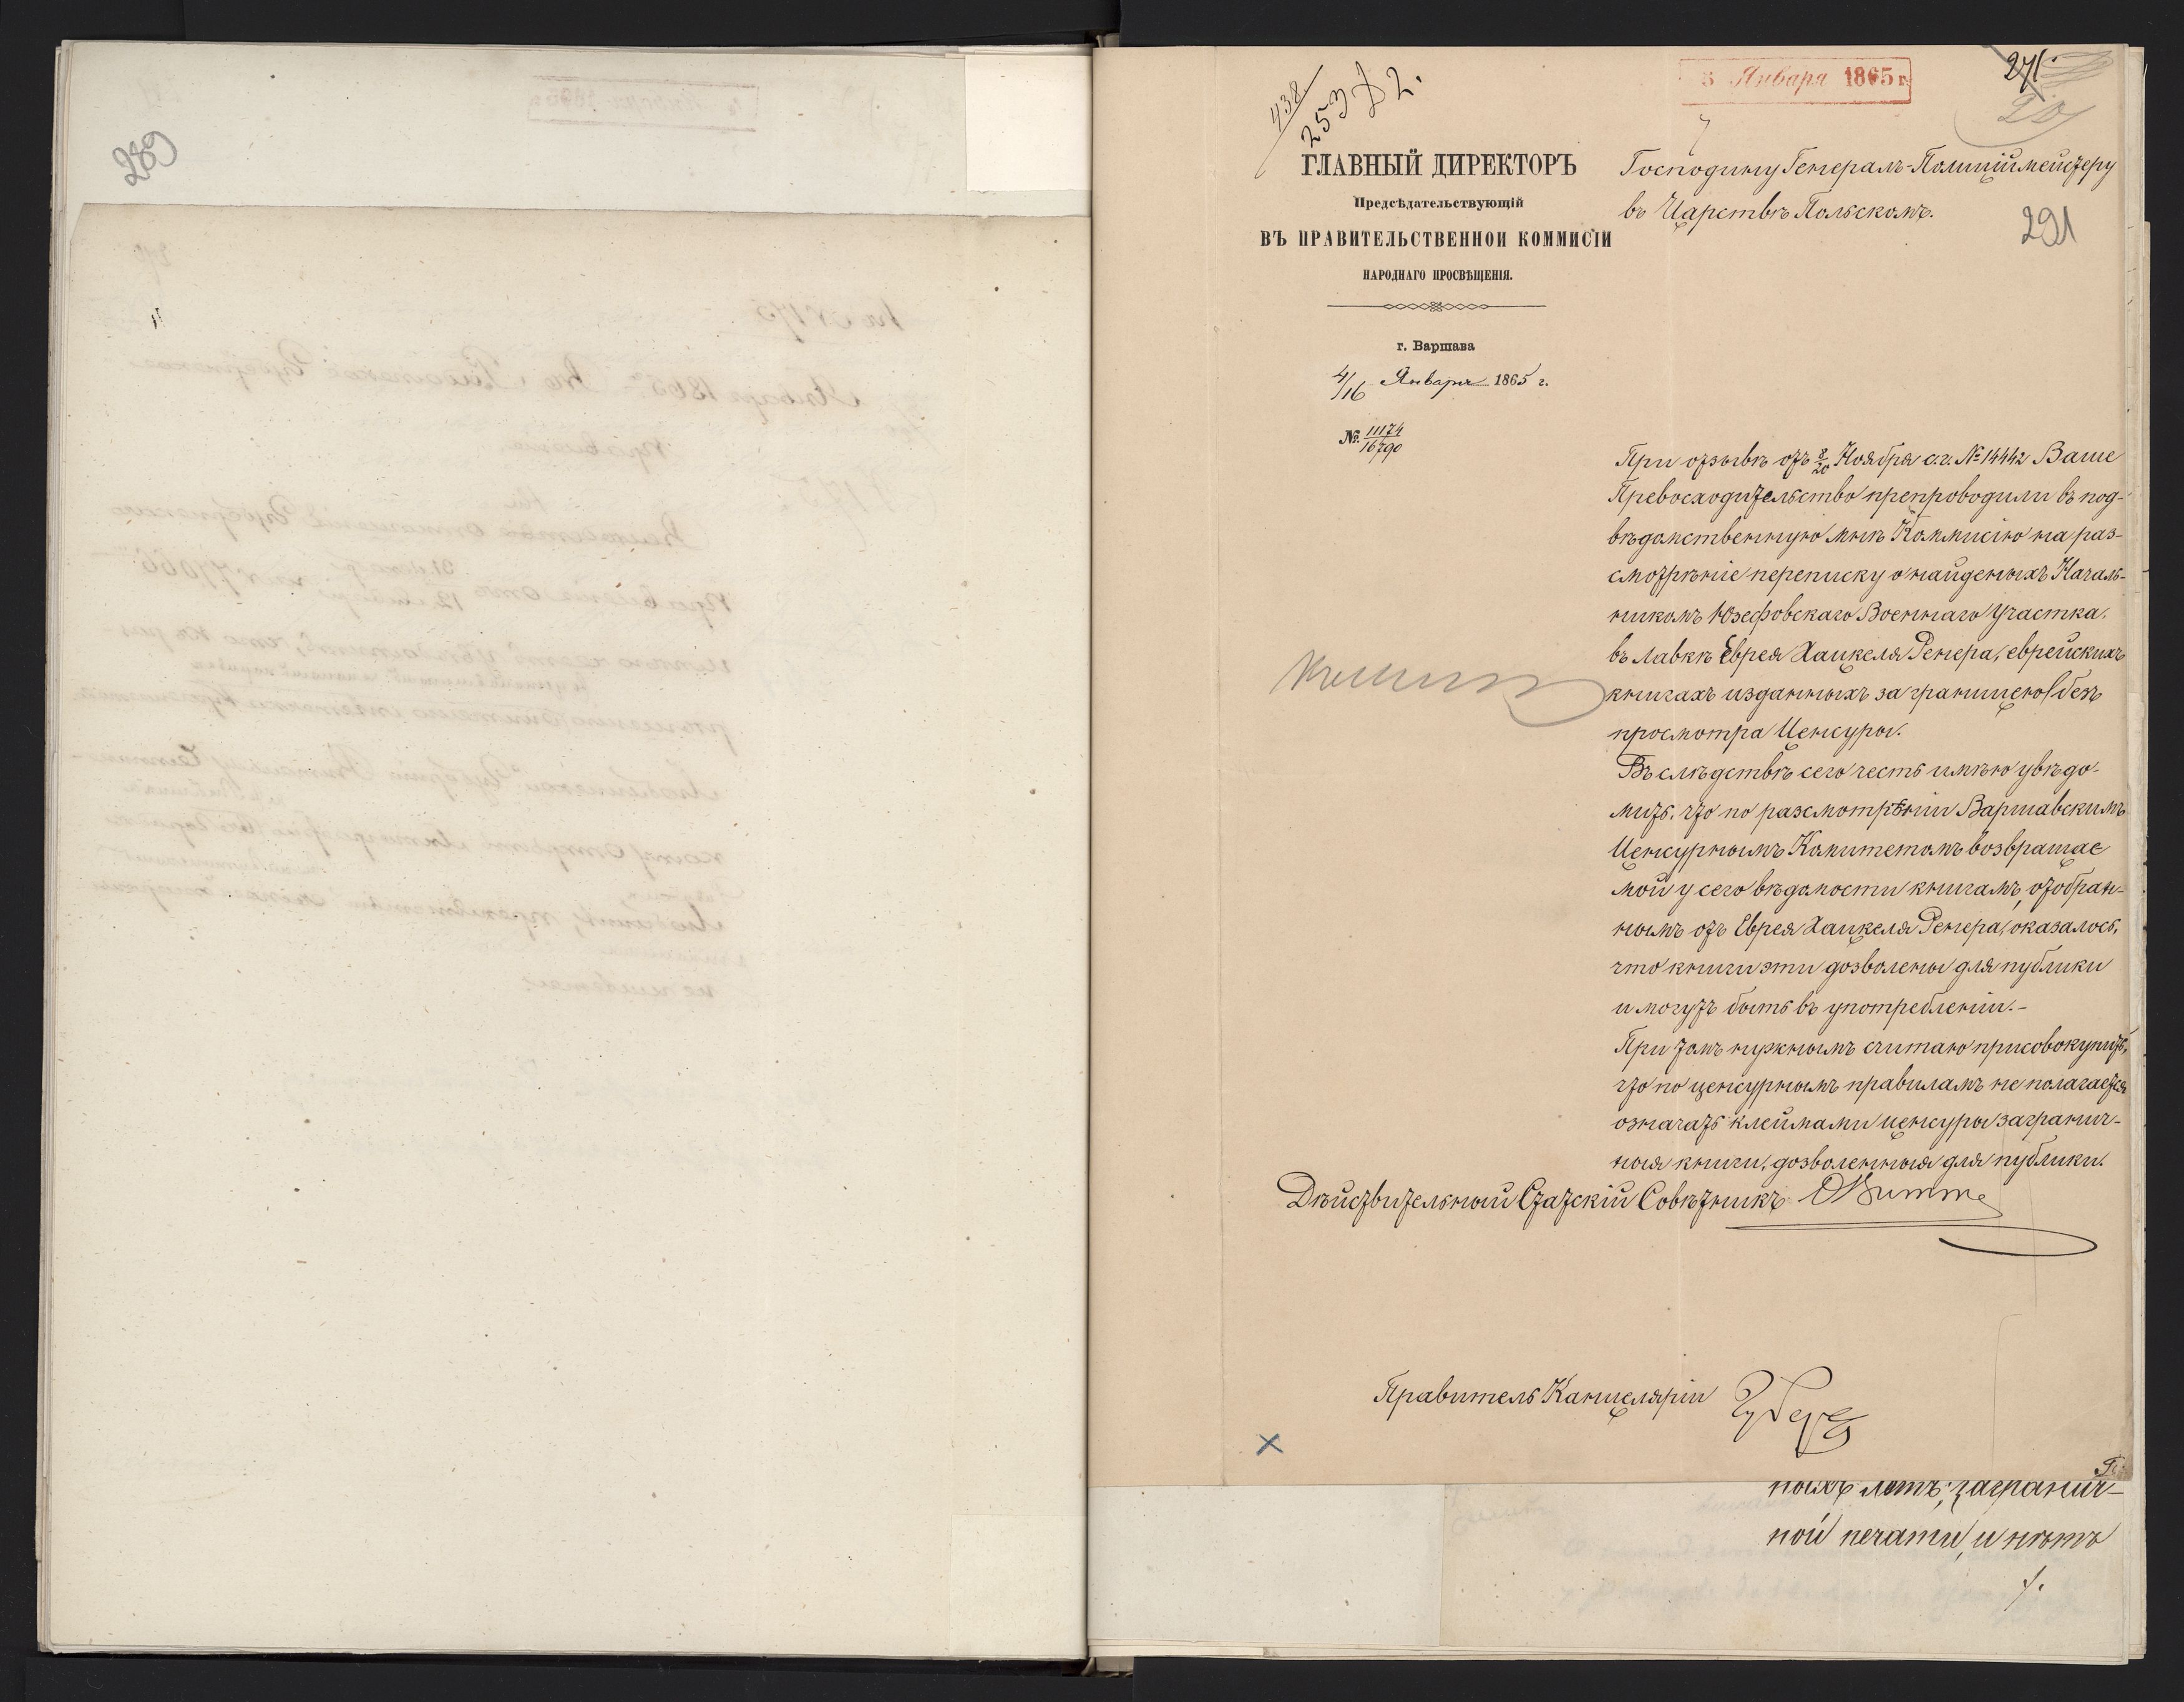 289
438
253 д 2.
5 Января 1865 г.
271.
291
ГЛАВНЫЙ ДИРЕКТОРЪ
Предсѣдательствующій
ВЪ ПРАВИТЕЛЬСТВЕННОЙ КОММИСІИ
НАРОДНАГО ПРОСВѢЩЕНІЯ.
г. Варшава
4/16 Января 1865 г.
№ 11174/16790
Господину Генералъ-Полицiймейстеру
въ Царствѣ Польскомъ.
При отзывѣ отъ 8/20 Ноября с.г. № 14442 Ваше
Превосходительство препроводили въ под-
вѣдомственную мнѣ Коммисію на раз-
смотрѣніе переписку о найденыхъ Началь-
никомъ Юзефовскаго Военнаго Участка,
въ лавкѣ Еврея Ханкеля Ренера, еврейскихъ
книгахъ изданныхъ за границею безъ
просмотра Ценсуры.
Въ слѣдствѣ сего честь имѣю увѣдо-
мить, что по разсмотрѣніи Варшавскимъ
Ценсурнымъ Комитетомъ возвращае
мой у сего вѣдомости книгамъ, отобран-
нымъ отъ Еврея Ханкеля Ренера, оказалось,
что книги эти дозволены для публики
и могутъ быть въ употребленіи.-
При томъ нужнымъ считаю присовокупить,
что по ценсурнымъ правиламъ не полагается
означать клеймами ценсуры загранич-
ныя книги, дозволенныя для публики.
Дѣйствительный Статскій Совѣтникъ Витте
Правитель Канцеляріи
ныхъ лѣтъ, загранич-
ной печати, и нѣтъ